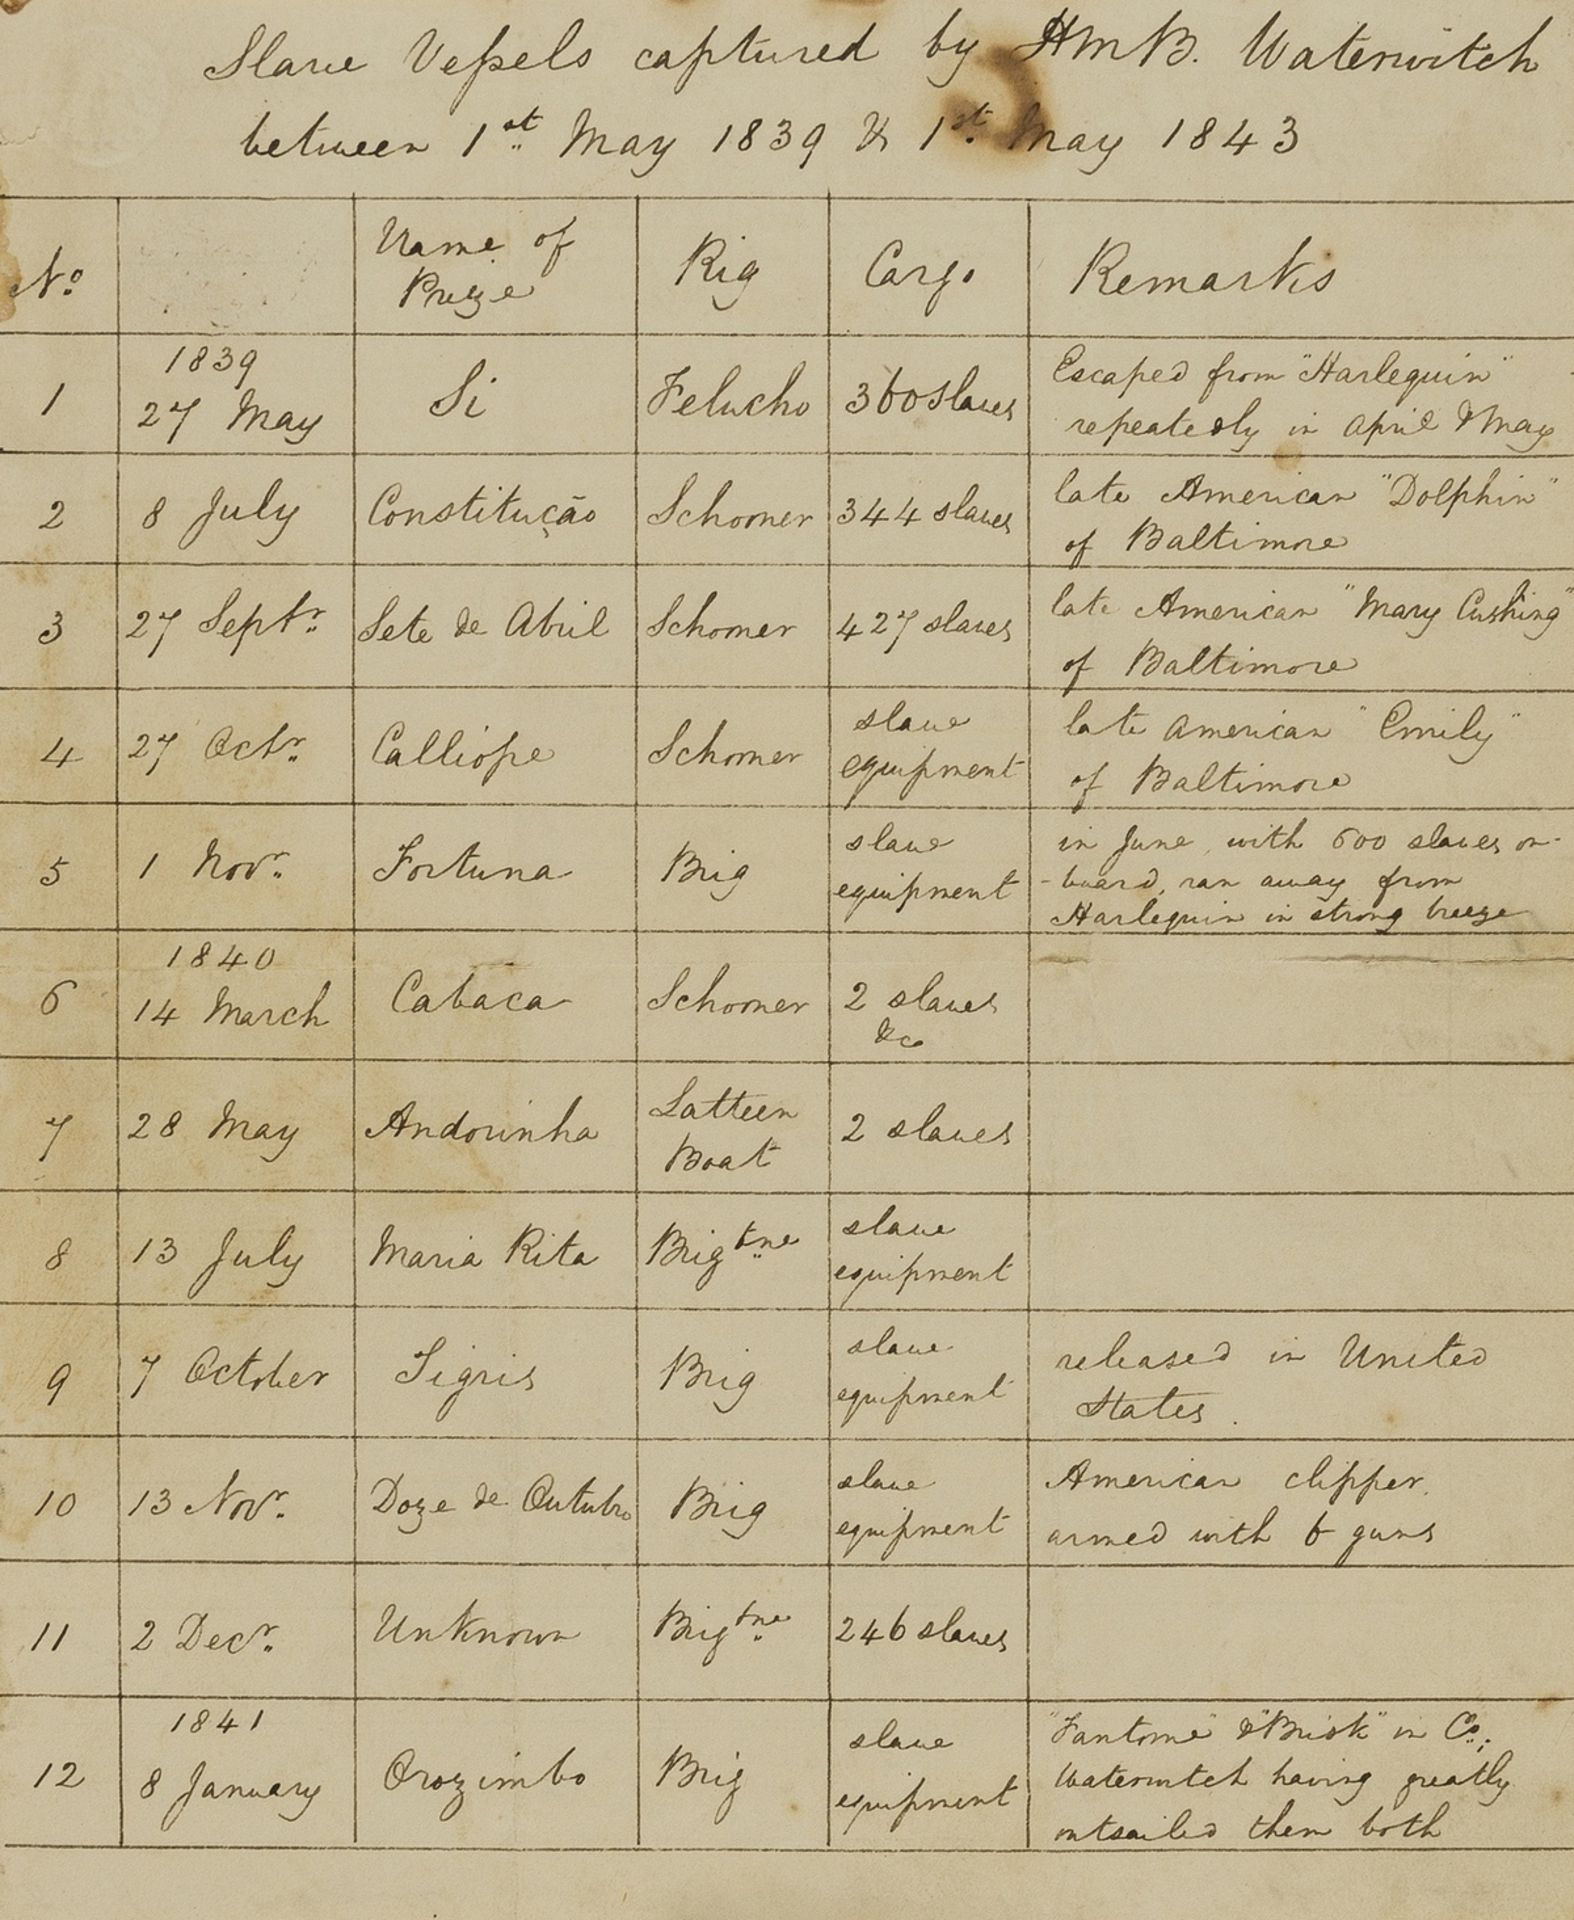 Slave Veſsels captured by HMB. Waterwitch
between 1st May 1839 & 1st May 1843
No. Name of Prize Rig Cargo Remarks
1839
1 27 May Si Felucho 360 slaves Escaped from "Harlequin"
repeatedly in April & May
2 8 July Constitução Schooner 344 slaves late American "Dolphin"
of Baltimore
3 27 Septr. Sete de Abril Schooner 427 slaves late American "Mary Cushing"
of Baltimore
4 27 Octr. Calliope Schooner slave equipment late American "Emily"
of Baltimore
5 1 Novr. Fortuna Brig slave equipment in June, with 600 slaves on-
-board, ran away from
Harlequin in strong breeze
1840
6 14 March Cabaca Schooner 2 slaves &c
7 28 May Andorinha Latteen Boat 2 slaves
8 13 July Maria Rita Brigtne slave equipment
9 7 October Tigris Brig slave equipment released in United
States.
10 13 Novr. Doze de Outubro Brig slave equipment American clipper.
armed with 6 guns
11 2 Decr. Unknown Brigtne. 246 slaves
1841
12 8 January Orozimbo Brig slave equipment "Fantome" & "Brisk" in Co.;
Waterwitch having greatly
outsailed them both